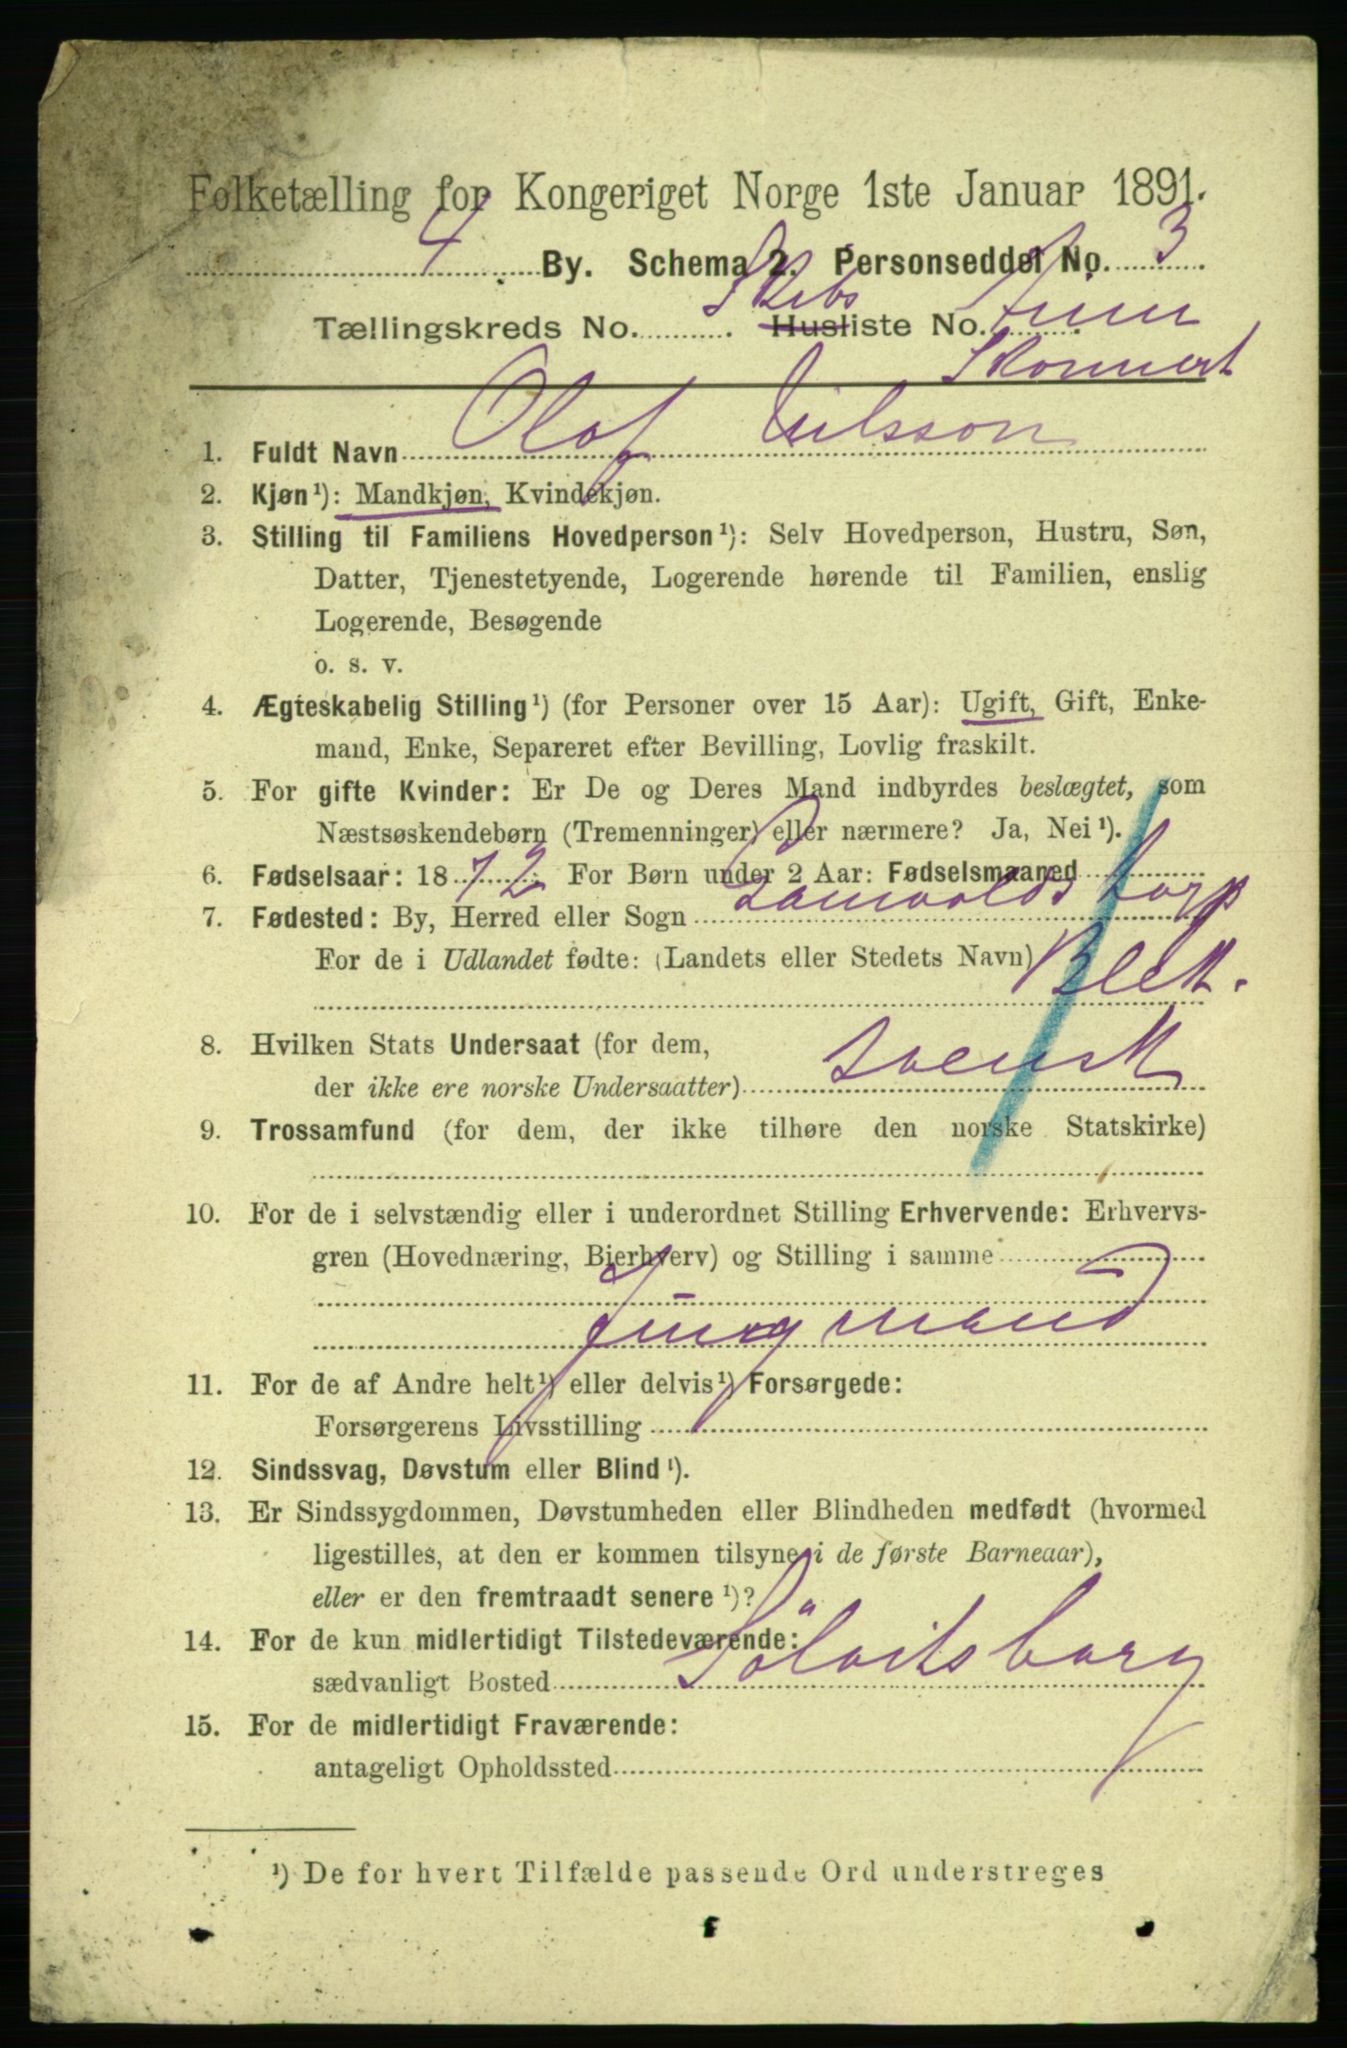 Folketælling for Kongeriget Norge 1ste Januar 1891.
4 By. Schema 2. Personseddel No. 3
Tællingskreds No. Skibs Husliste No.
Skonnert
1. Fuldt Navn Olof Nilsson
2. Kjøn¹): Mandkjøn, Kvindekjøn.
3. Stilling til Familiens Hovedperson¹): Selv Hovedperson, Hustru, Søn,
Datter, Tjenestetyende, Logerende hørende til Familien, enslig
Logerende, Besøgende
o. s. v.
4. Ægteskabelig Stilling¹) (for Personer over 15 Aar): Ugift, Gift, Enke-
mand, Enke, Separeret efter Bevilling, Lovlig fraskilt.
5. For gifte Kvinder: Er De og Deres Mand indbyrdes beslægtet, som
Næstsøskendebørn (Tremenninger) eller nærmere? Ja, Nei¹).
6. Fødselsaar: 1872 For Børn under 2 Aar: Fødselsmaaned
7. Fødested: By, Herred eller Sogn
For de i Udlandet fødte: (Landets eller Stedets Navn) Blek.
8. Hvilken Stats Undersaat (for dem,
der ikke ere norske Undersaatter) Svensk
9. Trossamfund (for dem, der ikke tilhøre den norske Statskirke)
10. For de i selvstændig eller i underordnet Stilling Erhvervende: Erhvervs-
gren (Hovednæring, Bierhverv) og Stilling i samme
Jungmand
11. For de af Andre helt¹) eller delvis¹) Forsørgede:
Forsørgerens Livsstilling
12. Sindssvag, Døvstum eller Blind¹).
13. Er Sindssygdommen, Døvstumheden eller Blindheden medfødt (hvormed
ligestilles, at den er kommen tilsyne i de første Barneaar),
eller er den fremtraadt senere¹)?
14. For de kun midlertidigt Tilstedeværende:
sædvanligt Bosted Sölvitsborg
15. For de midlertidigt Fraværende:
antageligt Opholdssted
¹) De for hvert Tilfælde passende Ord understreges